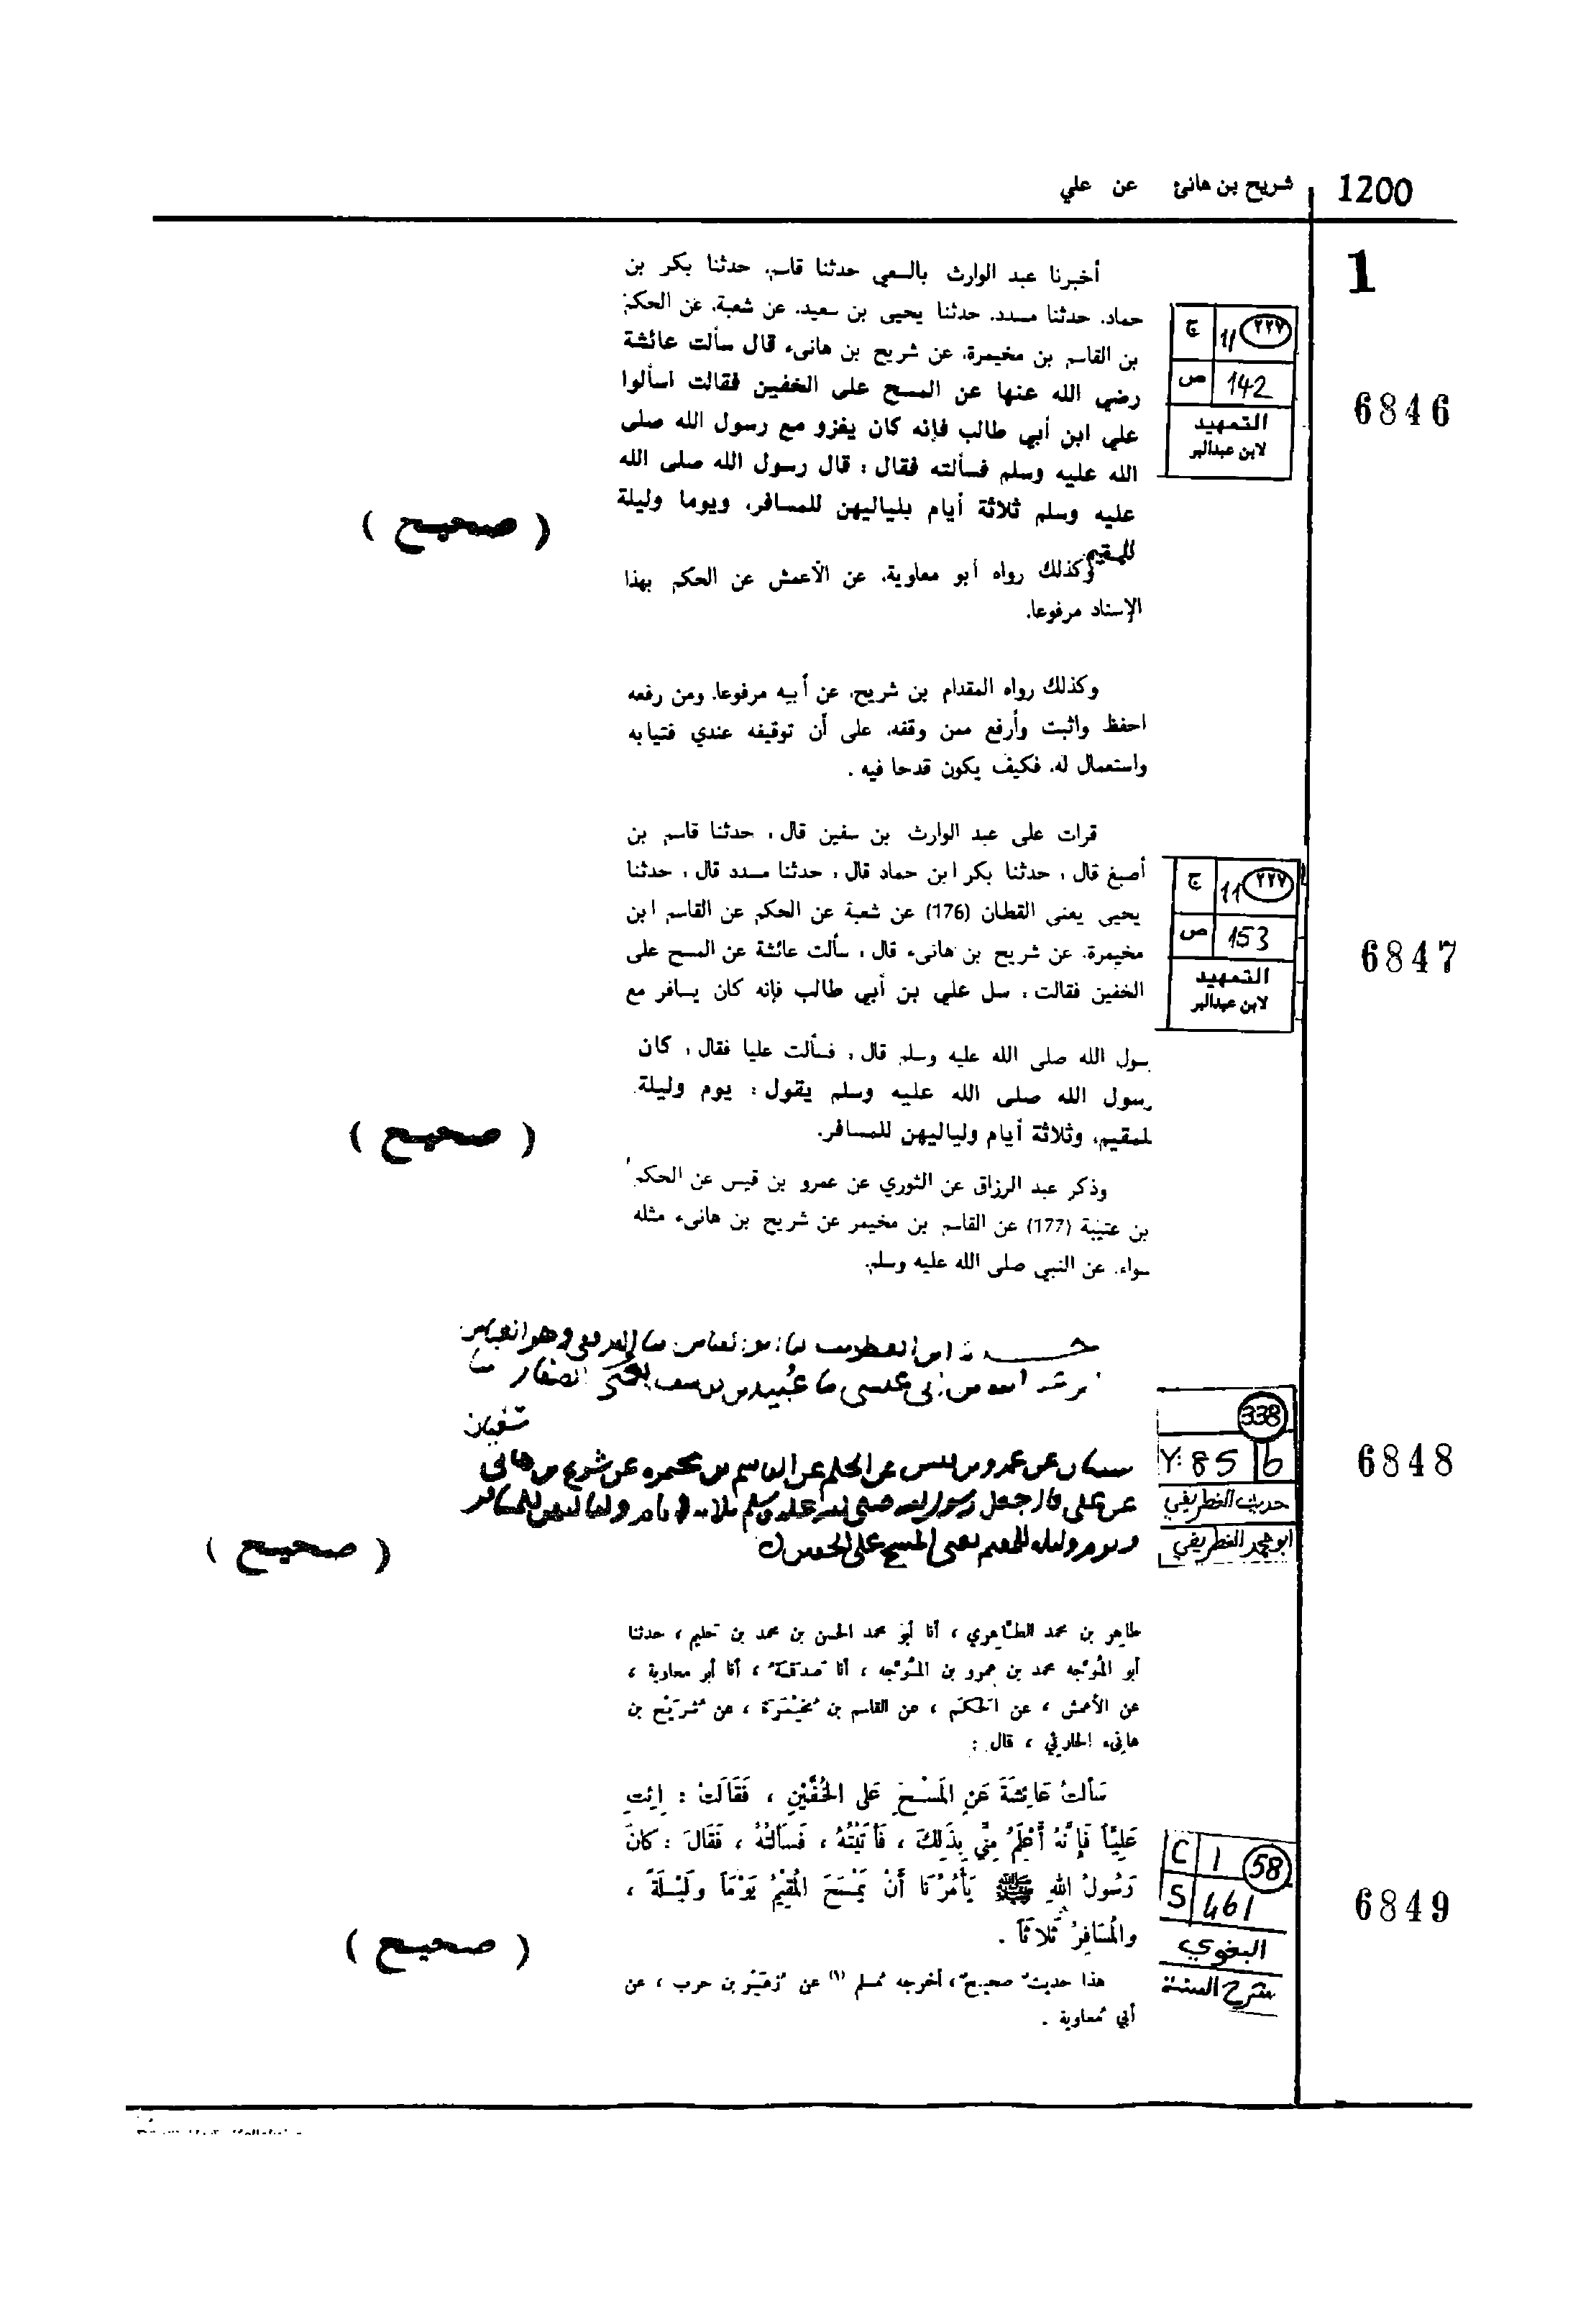 1200 شريح بن هانئ عن علي
1
أخبرنا عبد الوارث بالسعي حدثنا قاسم، حدثنا بكر بن
حماد، حدثنا مسدد، حدثنا يحيى بن سعيد، عن شعبة، عن الحكم
بن القاسم بن مخيمرة، عن شريح بن هانىء قال سألت عائشة
رضي الله عنها عن المسح على الخفين فقالت اسألوا
علي ابن أبي طالب فإنه كان يغزو مع رسول الله صلى
الله عليه وسلم فسألته فقال : قال رسول الله صلى الله
عليه وسلم ثلاثة أيام بلياليهن للمسافر، ويوما وليلة
للمقيم
( صحيح )
وكذلك رواه أبو معاوية، عن الأعمش عن الحكم بهذا
الإسناد مرفوعا.
ج 11 ٢٢٧
ص 142
التمهيد
لابن عبدالبر
6846
وكذلك رواه المقدام بن شريح، عن أبيه مرفوعا، ومن رفعه
احفظ واثبت وأرفع ممن وقفه، على أن توقيفه عندي فتيابه
واستعمال له، فكيف يكون قدحا فيه .
قرات على عبد الوارث بن سفين قال : حدثنا قاسم بن
أصبغ قال : حدثنا بكر ابن حماد قال : حدثنا مسدد قال : حدثنا
يحيى يعنى القطان (176) عن شعبة عن الحكم عن القاسم ابن
مخيمرة، عن شريح بن هانىء قال : سألت عائشة عن المسح على
الخفين فقالت : سل علي بن أبي طالب فإنه كان يسافر مع
سول الله صلى الله عليه وسلم قال : فسألت عليا فقال : كان
رسول الله صلى الله عليه وسلم يقول : يوم وليلة
لمقيم، وثلاثة أيام ولياليهن للمسافر.
( صحيح )
وذكر عبد الرزاق عن الثوري عن عمرو بن قيس عن الحكم
بن عتيبة (177) عن القاسم بن مخيمر عن شريح بن هانىء مثله
سواء، عن النبي صلى الله عليه وسلم.
ج 11 ٢٢٧
ص 153
التمهيد
لابن عبدالبر
6847
سفيان
عن عمرو بن قيس عن الحكم عن القاسم بن مخيمره عن شريح بن هانى
عن على قال جعل رسول الله صلى الله عليه وسلم ثلاثة ايام ولياليهن للمسافر
ويوم وليله للمقيم يعنى المسح على الخفين
( صحيح )
338
Y: 85 b
حديث الغطريفي
ابو محمد الغطريفي
6848
طاهر بن محمد الطاهري ، أنا أبو محمد الحسن بن محمد بن حليم ، حدثنا
أبو المُوَجه محمد بن عمرو بن المُوَجه ، أنا صدقة ، أنا أبو معاوية ،
عن الأعمش ، عن الحكَم ، عن القاسم بن مُخَيْمَرَة ، عن شُرَيْح بن
هانىء الحارثي ، قال :
سَأَلتُ عَائِشَةَ عَنِ المَسْحِ عَلى الخُفَّيْنِ ، فَقَالَتْ : اِئتِ
عَلِيّاً فَإِنَّهُ أَعْلَمُ مِنِّي بِذَلِكَ ، فَأَتَيْتُهُ ، فَسَأَلتُهُ ، فَقَالَ : كانَ
رَسُولُ اللهِ ﷺ يَأْمُرُنَا أَنْ يَمْسَحَ المُقِيْمُ يَوْمَاً وَلَيْلَةً ،
والمُسَافِرُ ثَلاثَاً .
( صحيح )
هذا حديث صحيح ، أخرجه مُسلم (١) عن زُهَيْر بن حرب ، عن
أبي مُعاوية .
C 1 58
S 461
البغوي
شرح السنة
6849